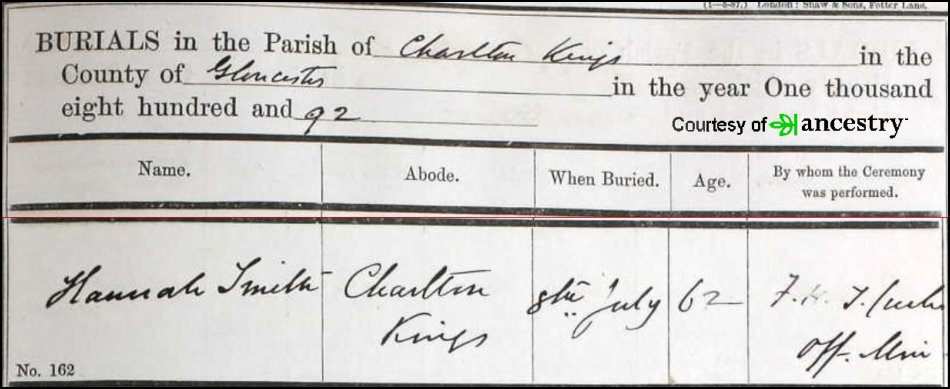 (1–5–87.) London: Shaw & Sons, Fetter Lane.
BURIALS in the Parish of Charlton Kings in the
County of Gloucester in the year One thousand
eight hundred and 92
Courtesy of ancestry
Name.
Abode.
When Buried.
Age.
By whom the Ceremony
was performed.
Hannah Smith
Charlton
Kings
8th July
62
F. H. J.
Off. Min
No. 162